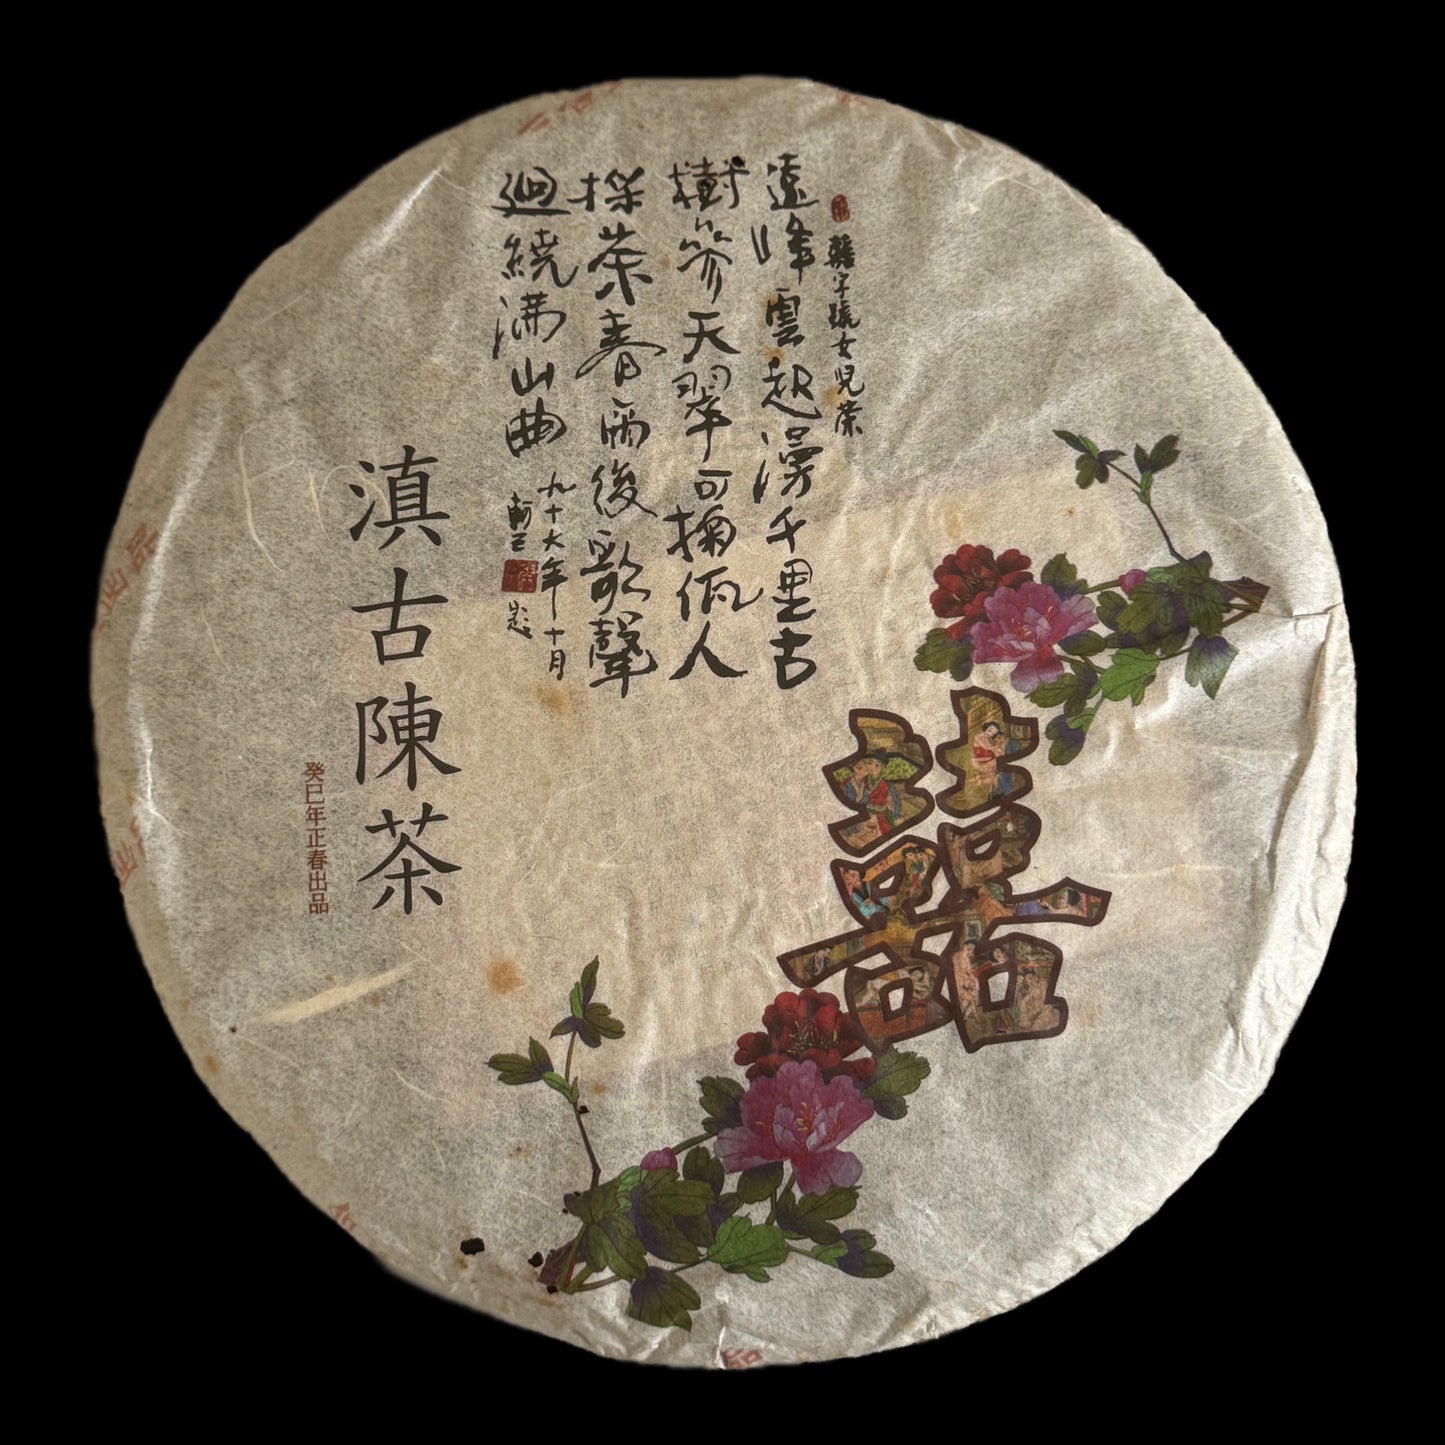 囍字號女兒茶
遠峰雲起漫千里古
樹參天翠可掬佤人
採茶春雨後歌聲
迴繞满山曲
九十六年十月
滇古陳茶
癸巳年正春出品
囍
出品